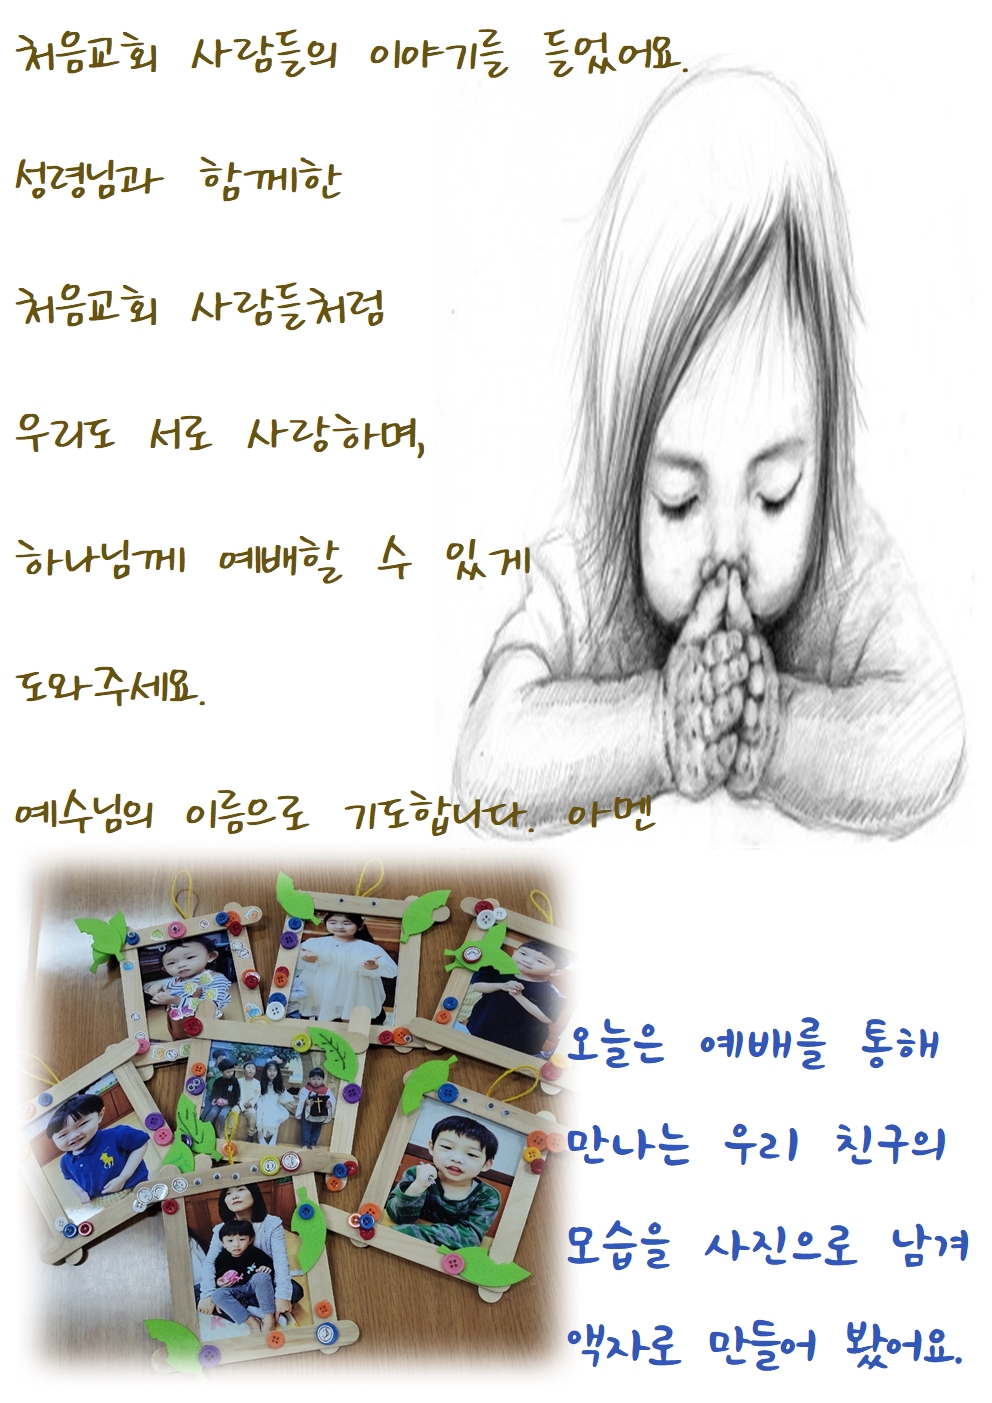 처음교회 사람들의 이야기를 들었어요.
성령님과 함께한
처음교회 사람들처럼
우리도 서로 사랑하며,
하나님께 예배할 수 있게
도와주세요.
예수님의 이름으로 기도합니다. 아멘
오늘은 예배를 통해
만나는 우리 친구의
모습을 사진으로 남겨
액자로 만들어 봤어요.